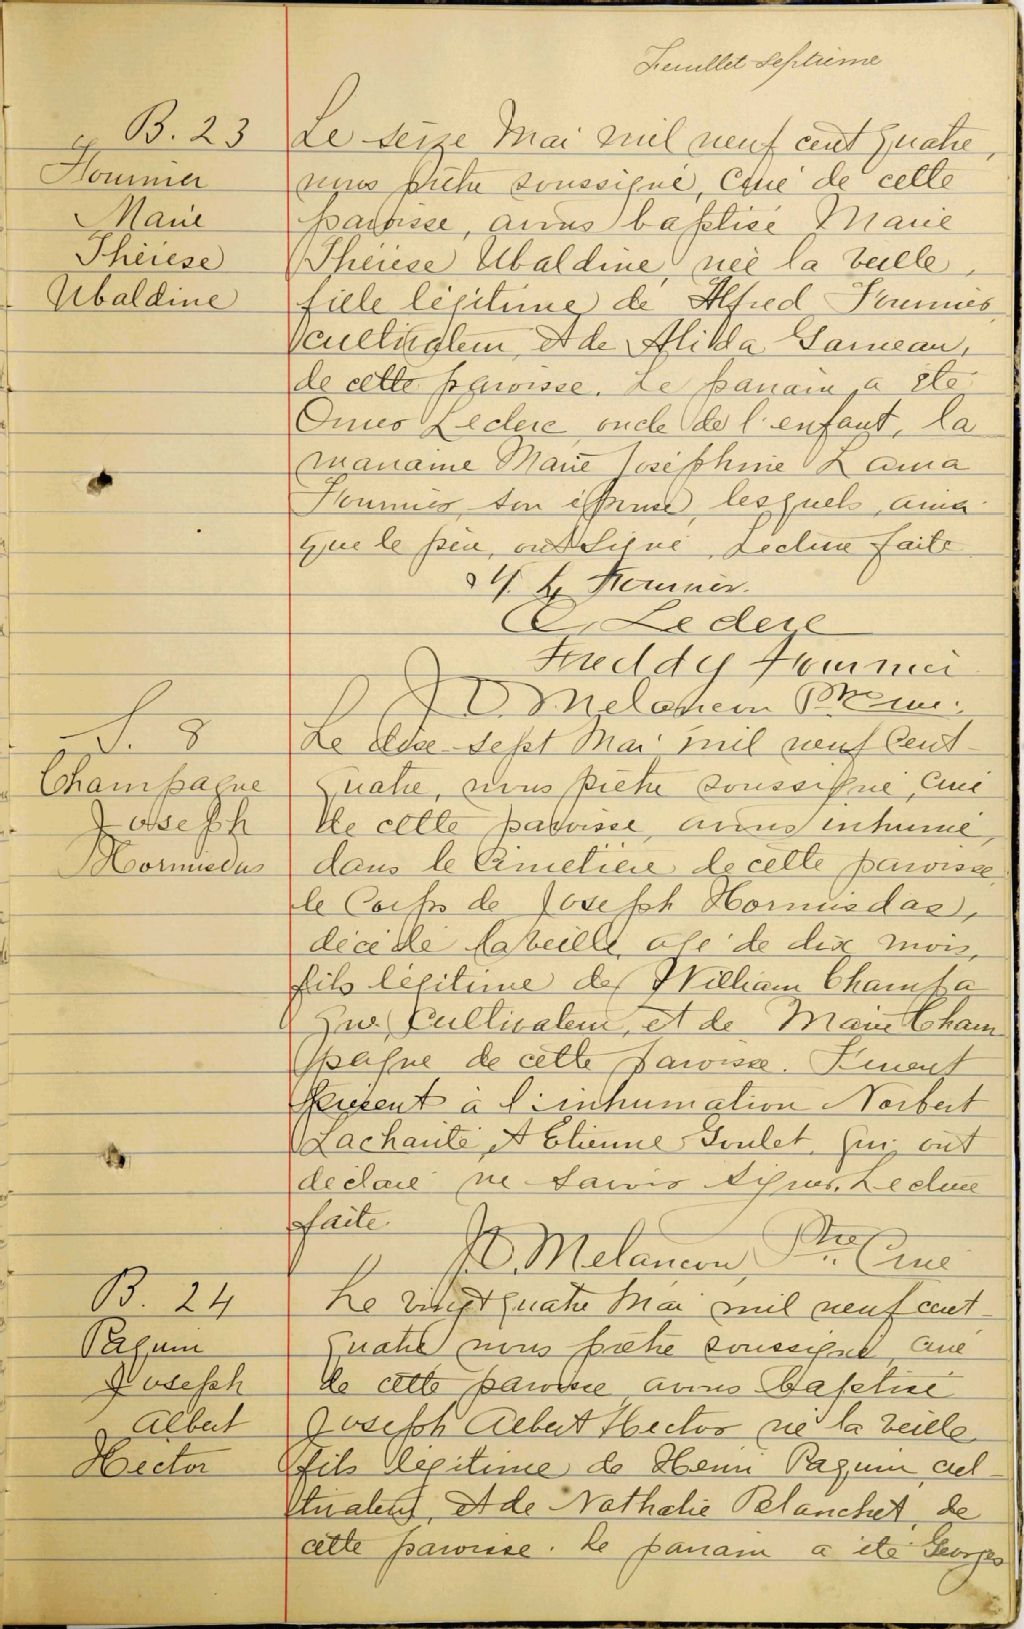 Feuillet septième
B. 23
Fournier
Marie
Thérèse
Ubaldine
Le seize Mai mil neuf cent quatre,
nous prêtre soussigné, Curé de cette
paroisse, avons baptisé Marie
Thérèse Ubaldine née la veille,
fille légitime de Alfred Fournier
cultivateur, et de Alida Garneau,
de cette paroisse. Le parrain a été
Omer Leclerc oncle de l'enfant, la
marraine Marie Joséphine Laura
Fournier, son épouse, lesquels, ainsi
que le père, ont signé. Lecture faite
L. Fournier.
O. Leclerc
Freddy Fournier
J. O. Melancon Ptre Curé.
S. 8
Champagne
Joseph
Hormisdas
Le dix-sept Mai mil neuf cent-
quatre, nous prêtre soussigné, curé
de cette paroisse, avons inhumé,
dans le Cimetière de cette paroisse,
le Corps de Joseph Hormisdas,
décédé la veille, agé de dix mois,
fils légitime de William Champa
gne, Cultivateur, et de Marie Cham
pagne de cette paroisse. Furent
présent à l'inhumation Norbert
Lacharité, et Etienne Goulet, qui ont
déclaré ne savoir signer. Lecture
faite.
J. O. Melancon, Ptre Curé
B. 24
Paquin
Joseph
Albert
Hector
Le vingt quatre Mai mil neuf cent-
quatre nous prêtre soussigné, curé
de cette paroisse avons baptisé
Joseph Albert Hector né la veille
fils légitime de Henri Paquin, cul-
tivateur, et de Nathalie Blanchet, de
cette paroisse. Le parrain a été Georges